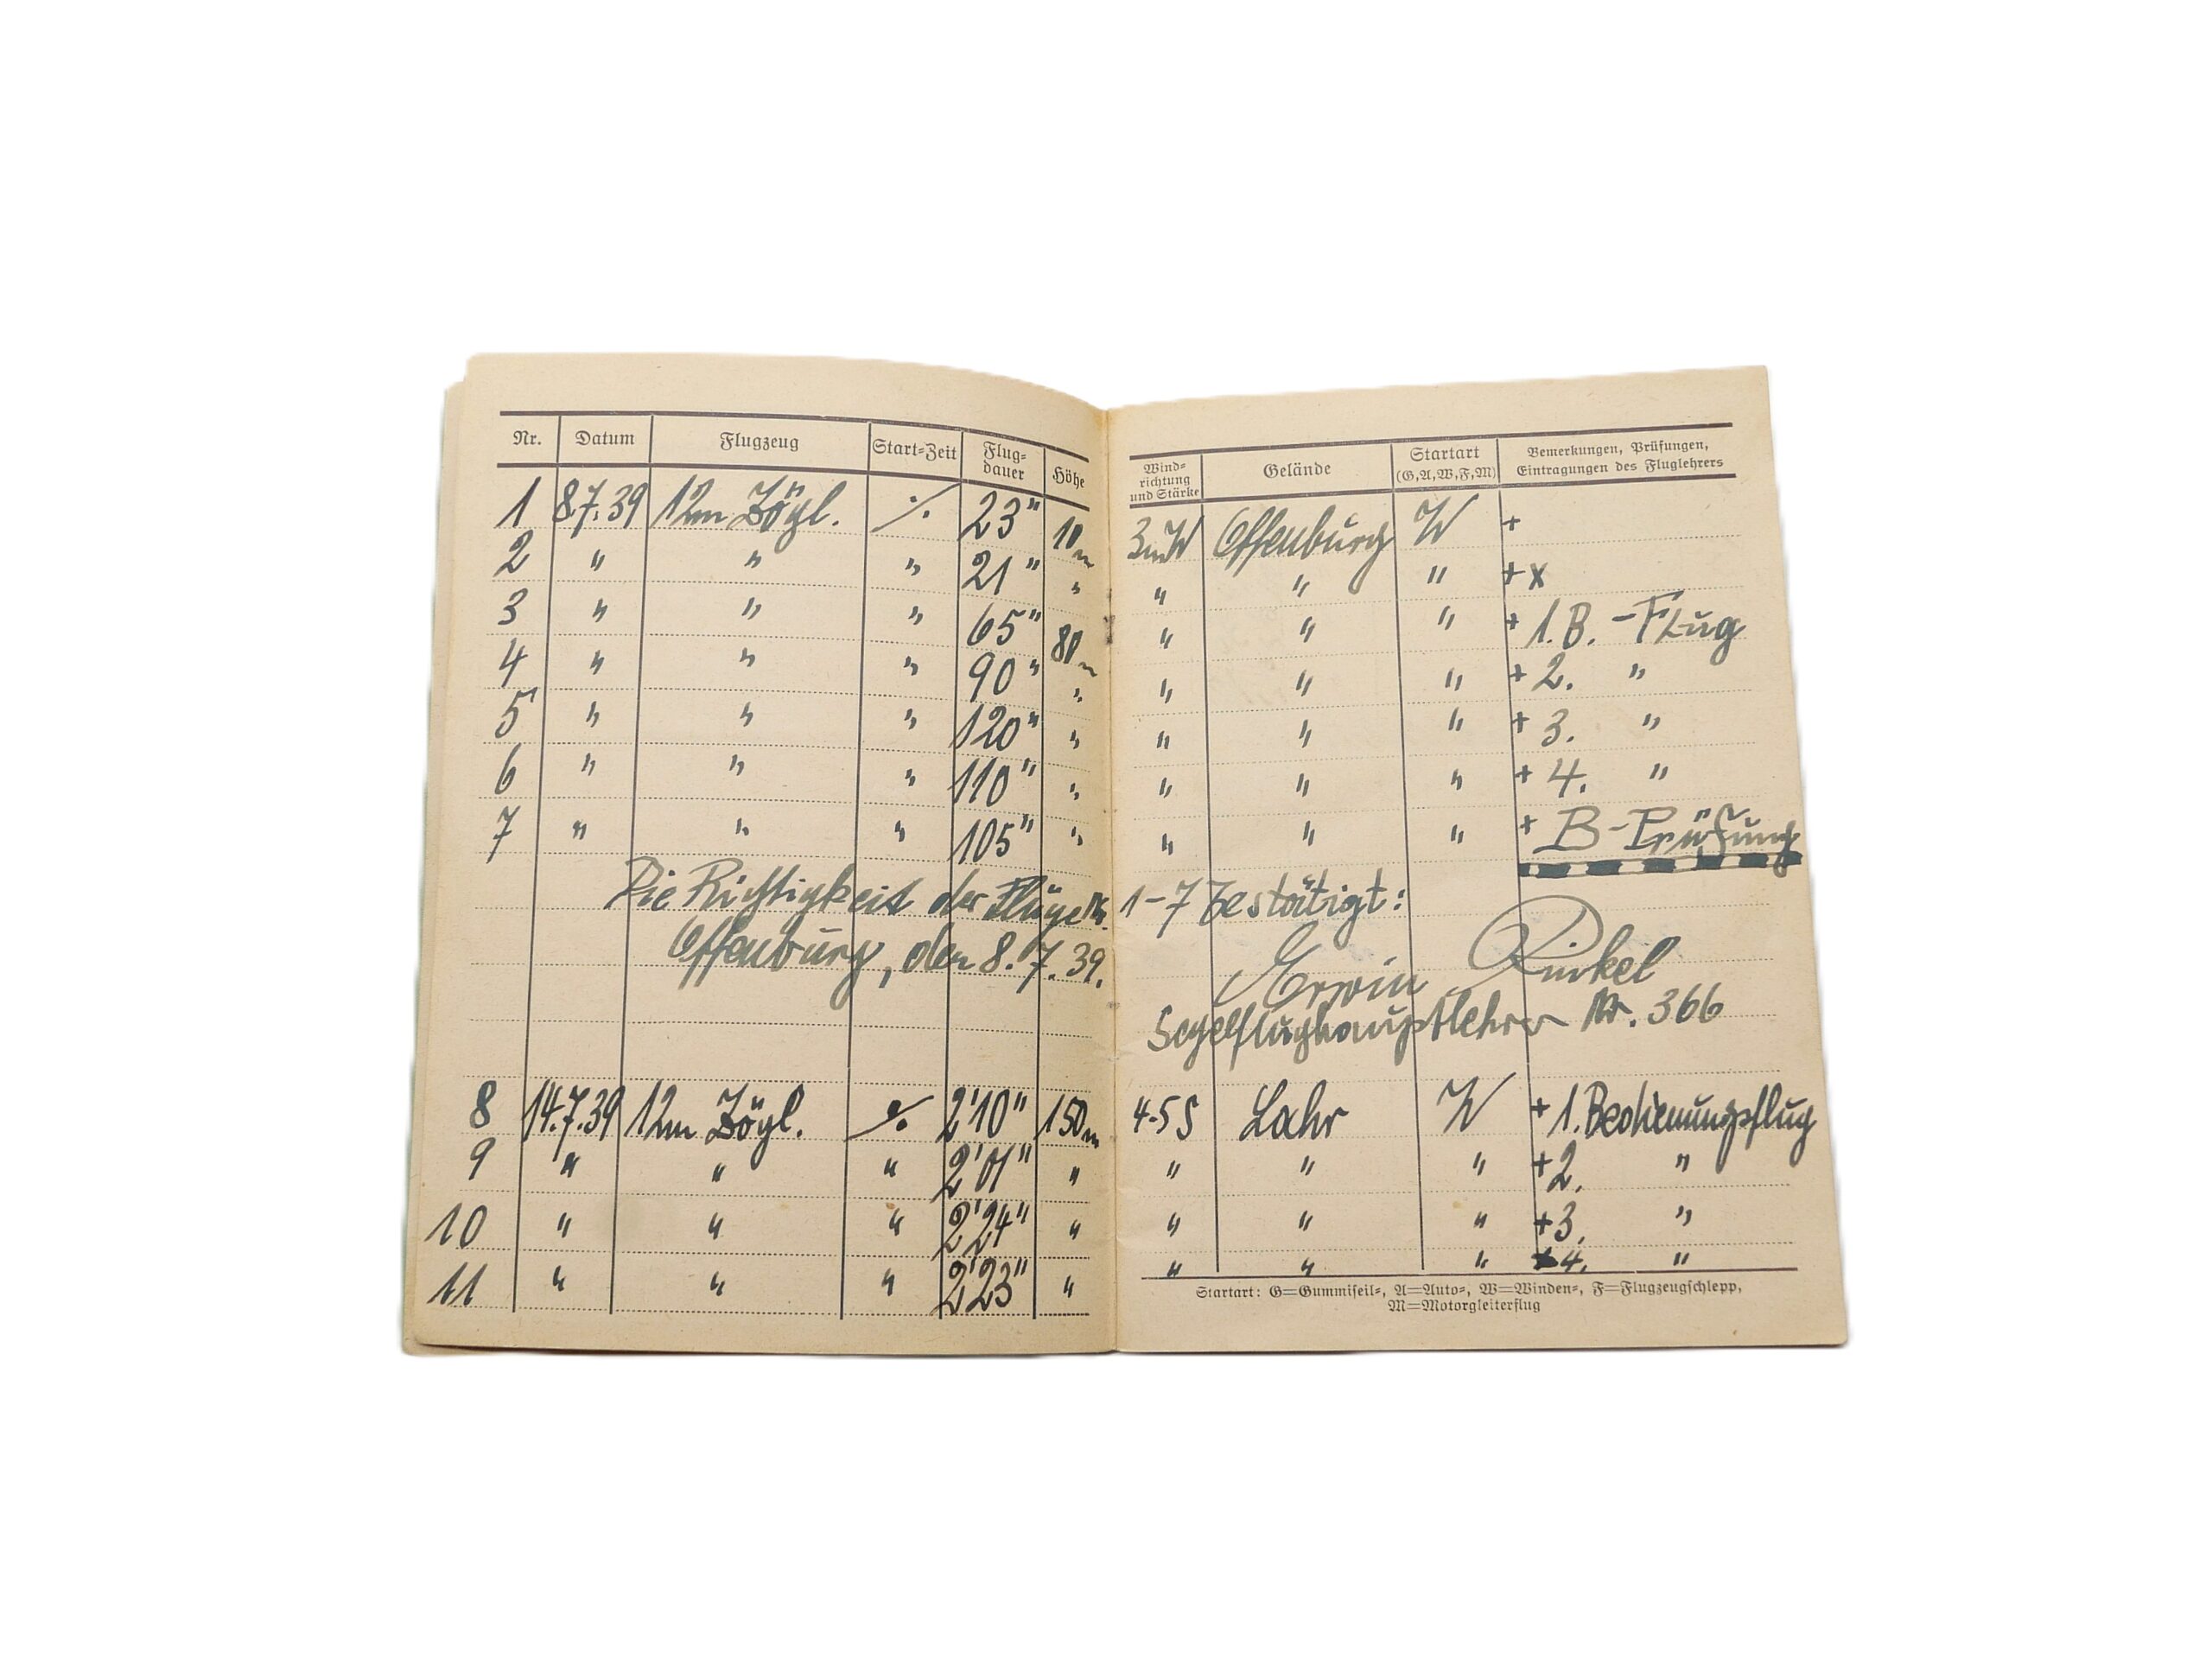 Nr. Datum Flugzeug Start-Zeit Flug-dauer Höhe Wind-richtung und Stärke Gelände Startart (G,A,W,F,M) Bemerkungen, Prüfungen, Eintragungen des Fluglehrers
1 8.7.39 12m Zögl. ./. 23" 10m 3mW Offenburg W +
2 " " " 21" " " " " + x
3 " " " 65" 80m " " " + 1.B.-Flug
4 " " " 90" " " " " + 2. "
5 " " " 120" " " " " + 3. "
6 " " " 110" " " " " + 4. "
7 " " " 105" " " " " + B-Prüfung
Die Richtigkeit der Flüge Nr. 1-7 bestätigt:
Offenburg, den 8.7.39. Erwin Rinkel
Segelflughauptlehrer Nr. 366
8 14.7.39 12m Zögl. ./. 2'10" 150m 4-5 S Lahr W + 1.Bedienungsflug
9 " " " 2'01" " " " " + 2. "
10 " " " 2'24" " " " " + 3. "
11 " " " 2'23" " " " " + 4. "
Startart: G=Gummiseil-, A=Auto-, W=Winden-, F=Flugzeugschlepp,
M=Motorgleiterflug